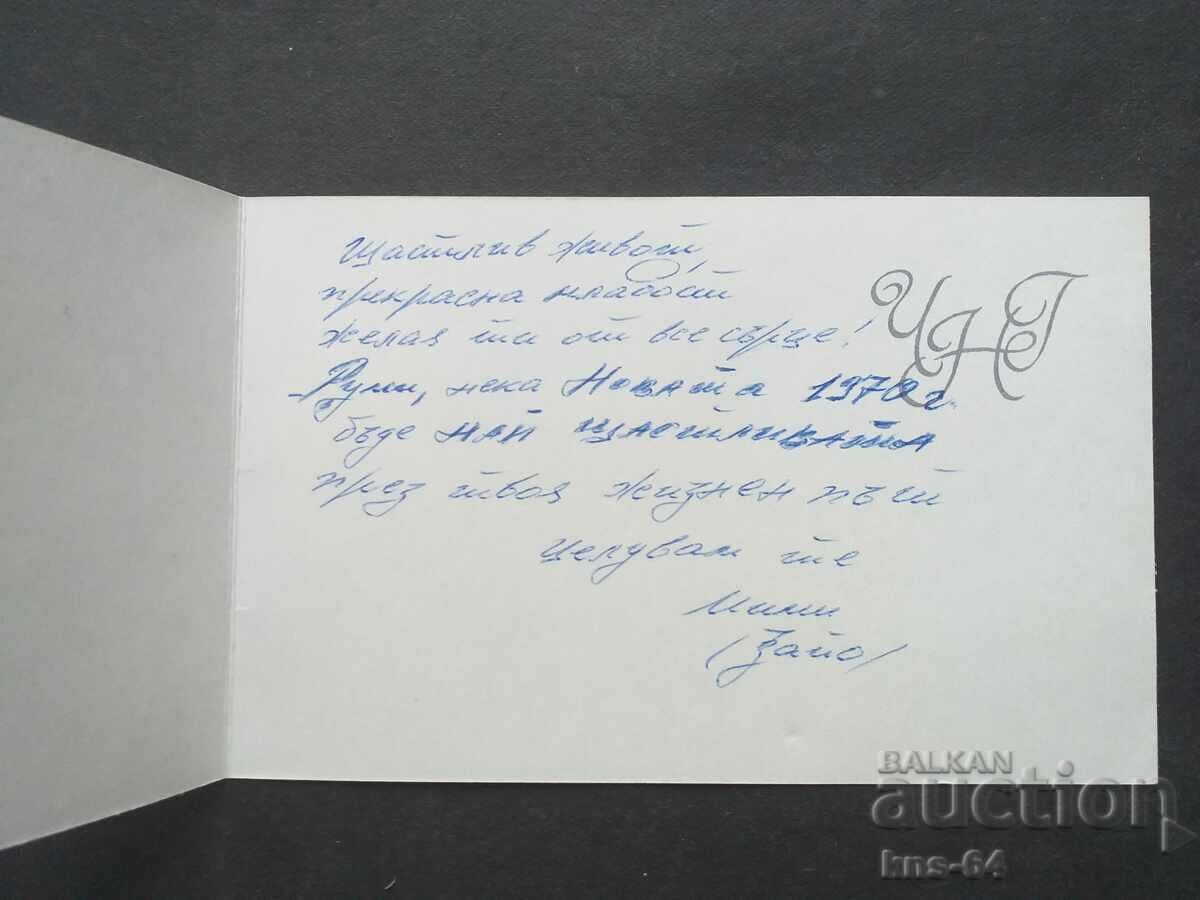 Щастлив живот,
прекрасна младост
желая ти от все сърце!
Руми, нека Новата 1970 г.
бъде най щастливата
през твоя жизнен път
Целувам те
Мими
/Зайо/
ЧНГ
BALKAN
auction
kns-64